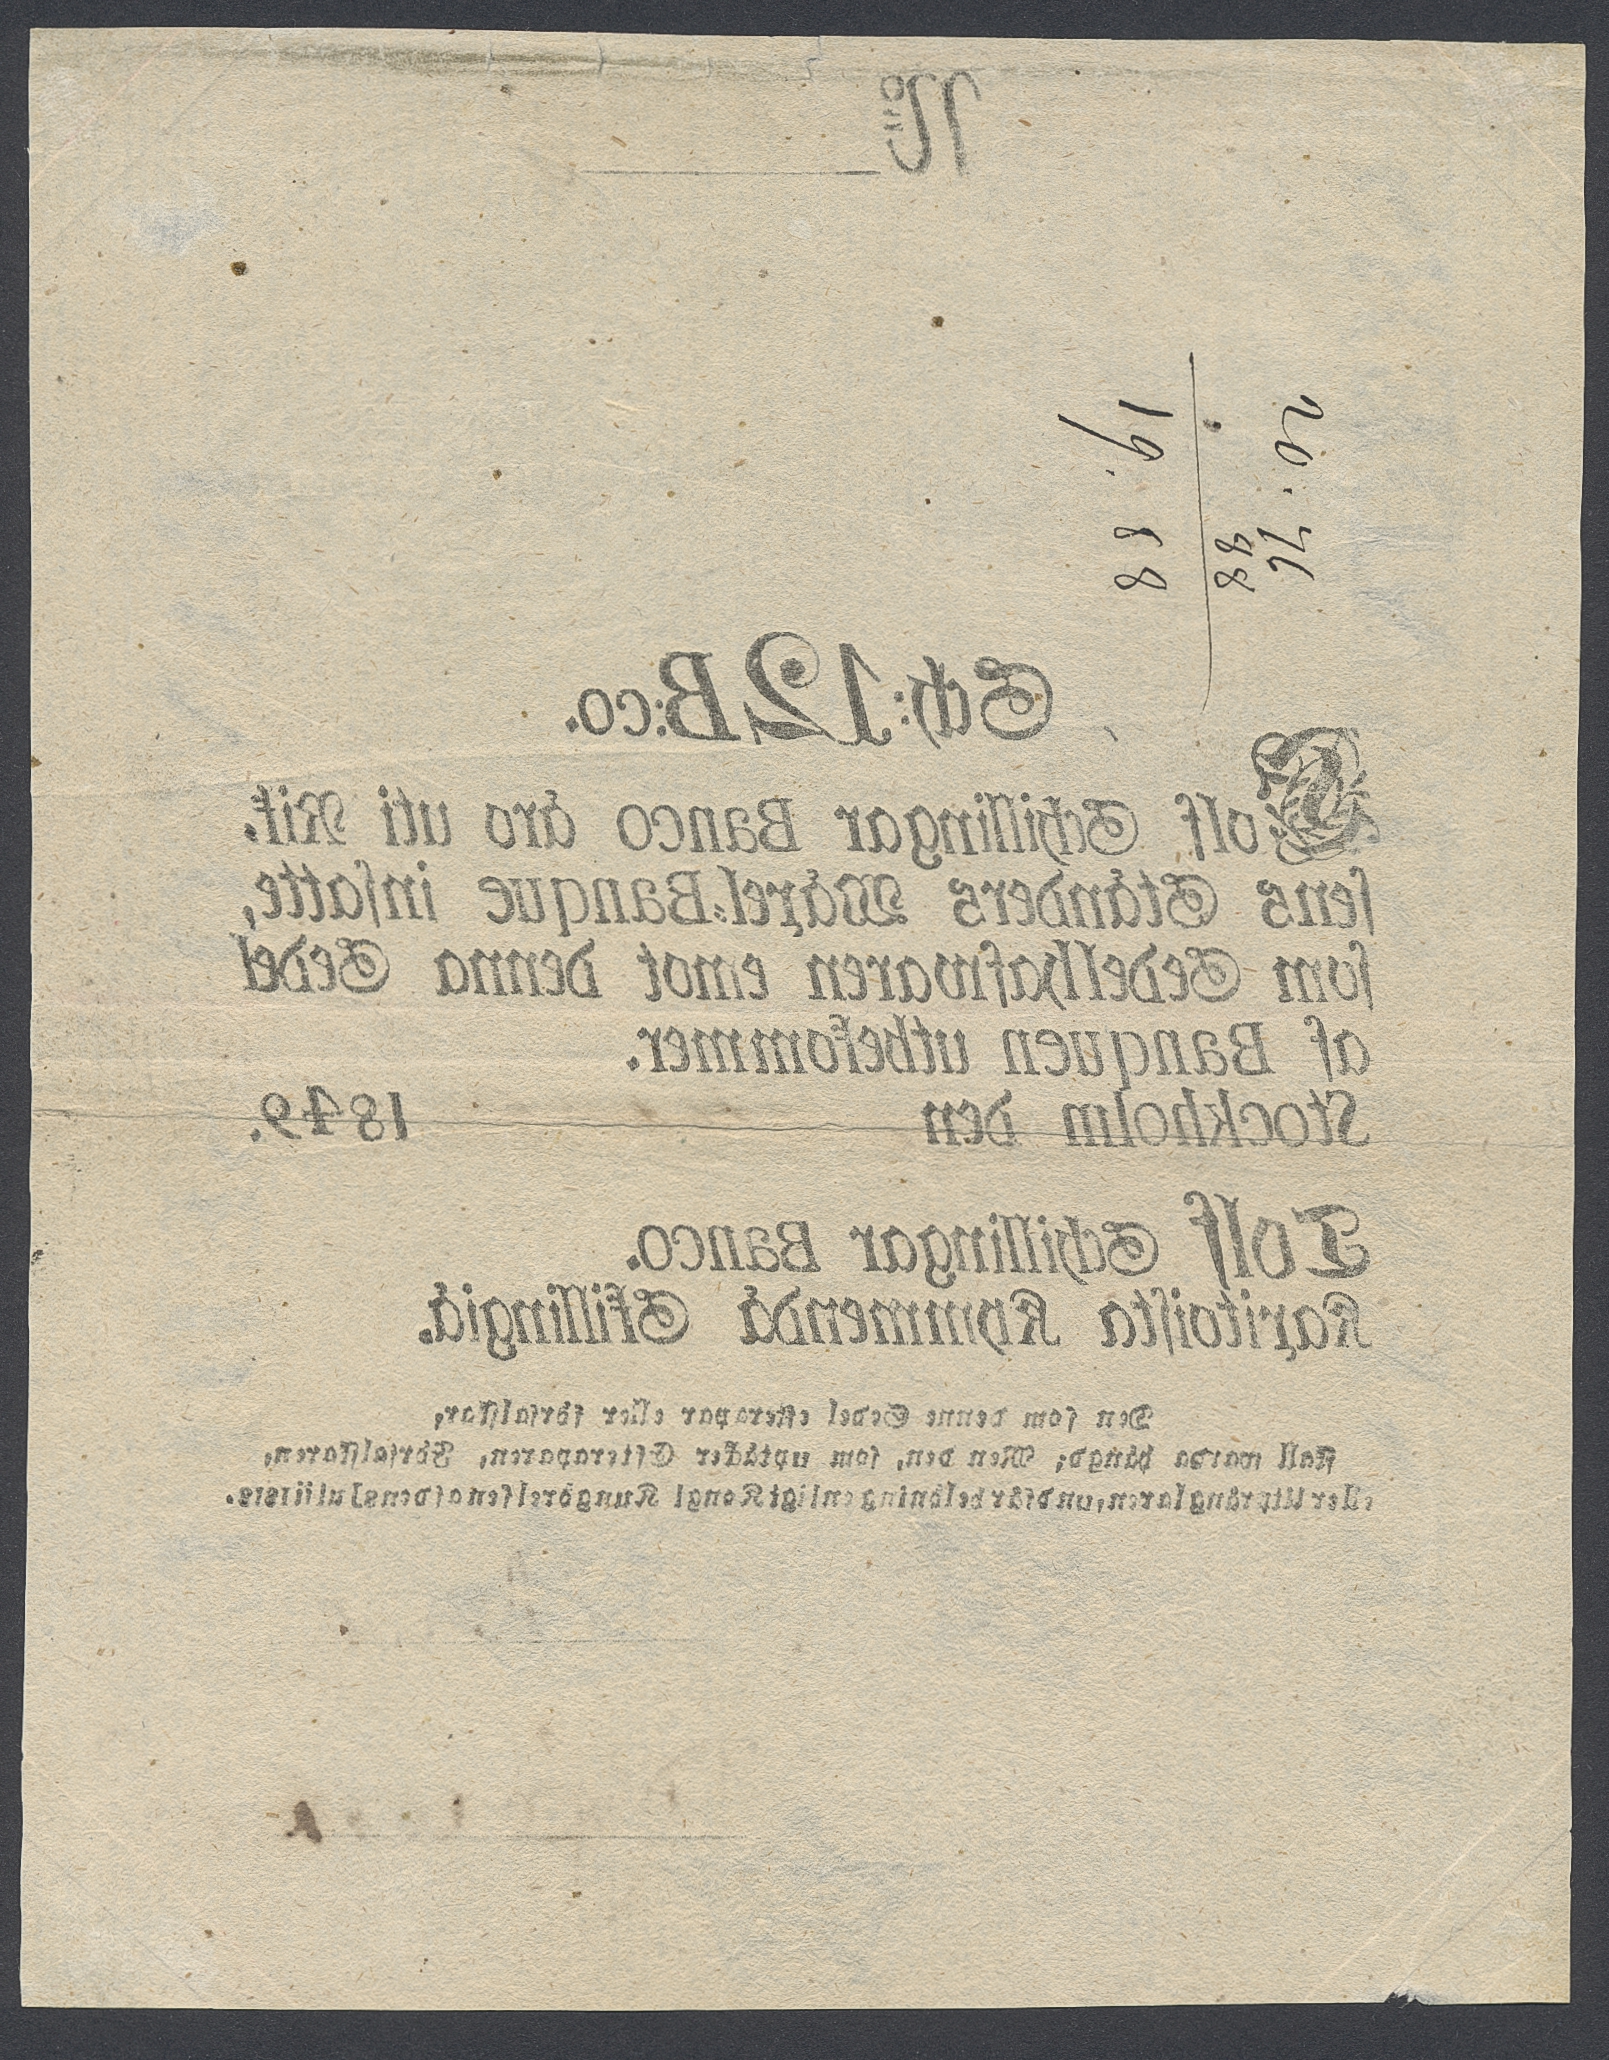 N:o
20. 76
88
19. 88
Sch: 12 B:co.
Tolf Schillingar Banco äro uti Rik-
sens Ständers Wäxel-Banque insatte,
som Sedelhafwaren emot denna Sedel
af Banquen utbekommer.
Stockholm den 1849.
Tolf Schillingar Banco.
Kaxitoista Kymmendä Skillingiä.
Den som denne Sedel efterapar eller förfalskar,
skall warda hängd; Men den, som uptäcker Efteraparen, Förfalskaren,
eller Utprånglaren, undfår belöning enligt Kongl Kungörelsen af den 8 Julii 1818.